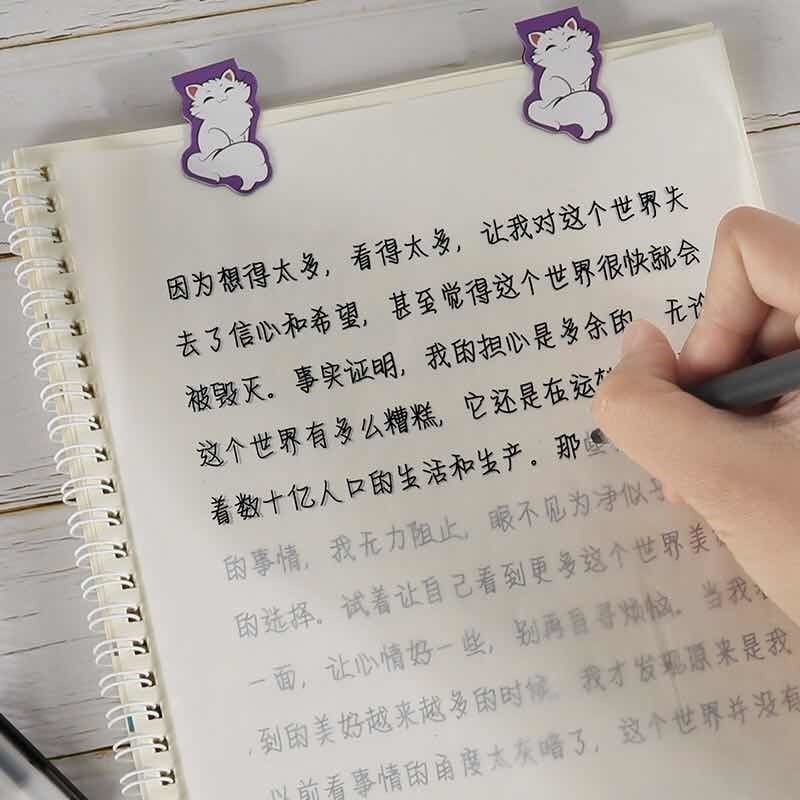 因为想得太多，看得太多，让我对这个世界失
去了信心和希望，甚至觉得这个世界很快就会
被毁灭。事实证明，我的担心是多余的，无论
这个世界有多么糟糕，它还是在运
着数十亿人口的生活和生产。那些
的事情，我无力阻止，眼不见为净似乎
的选择。试着让自己看到更多这个世界美
一面，让心情好一些，别再自寻烦恼。当我
到的美好越来越多的时候，我才发现原来是我
以前看事情的角度太灰暗了，这个世界并没有